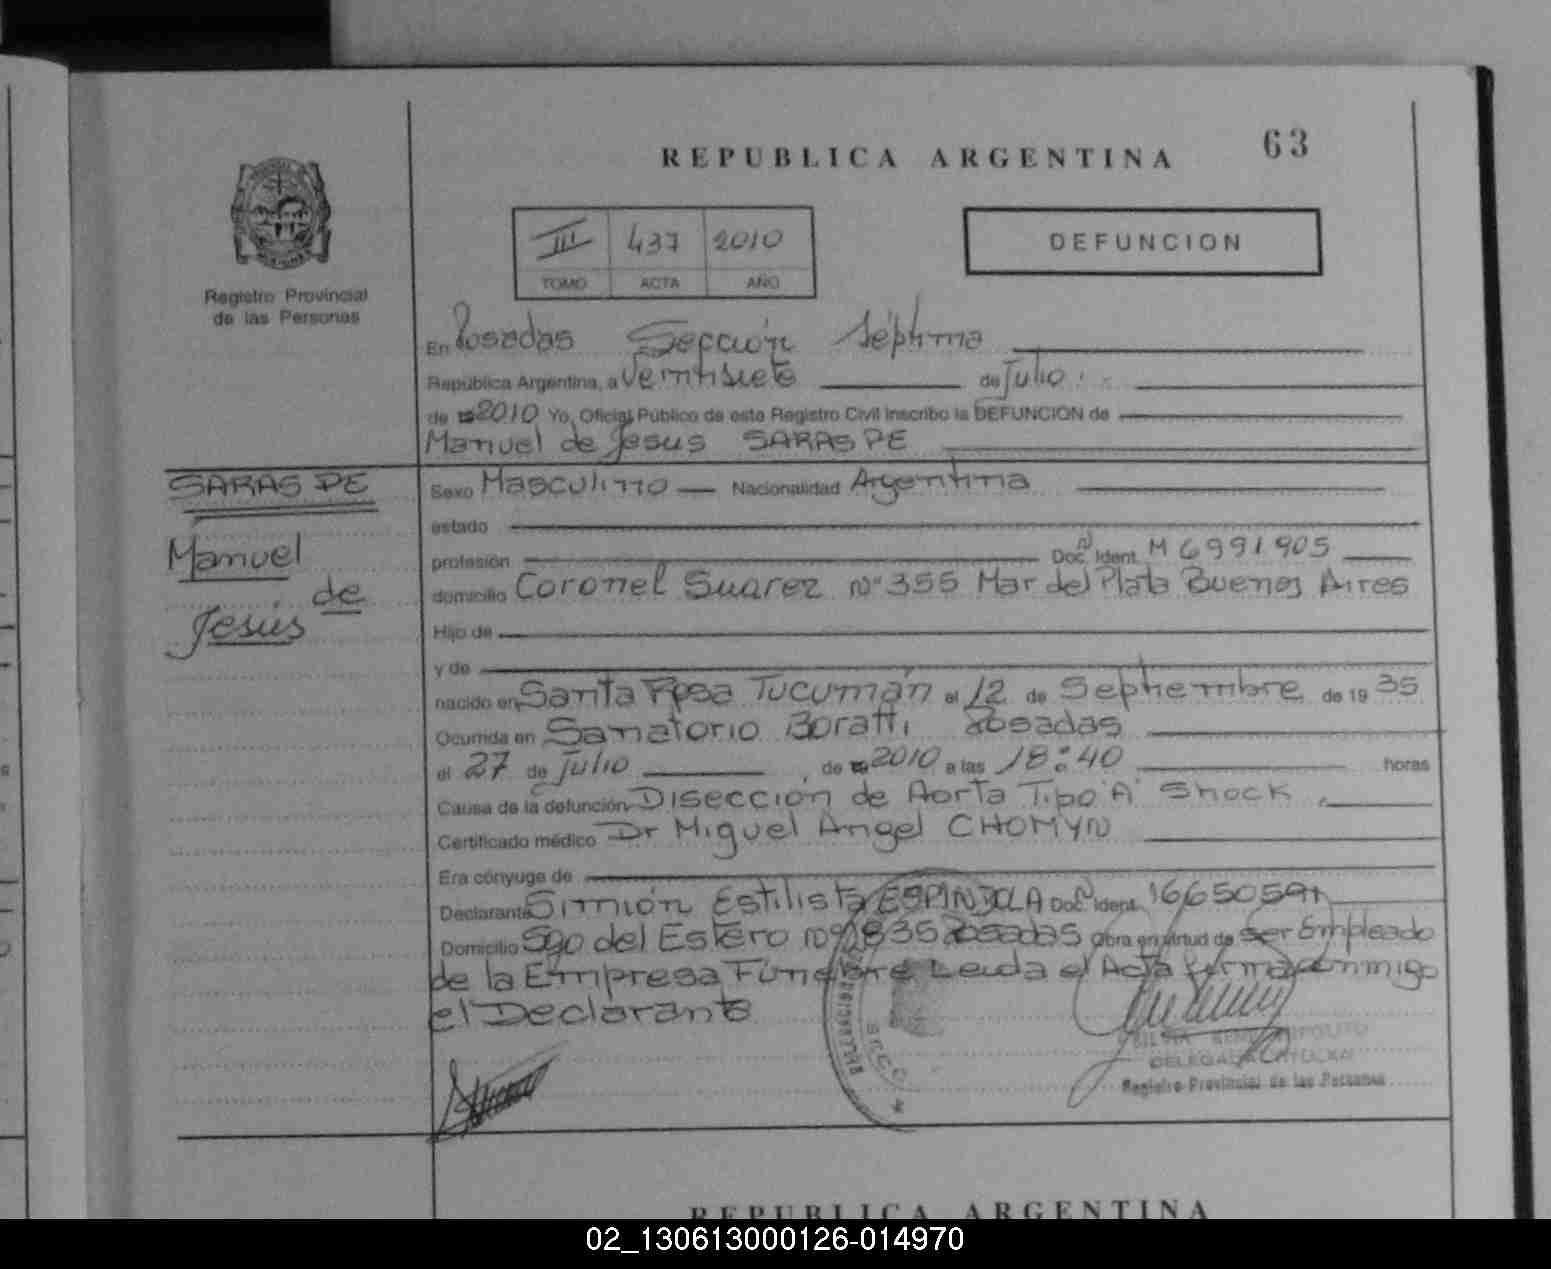 63
REPUBLICA ARGENTINA
III 437 2010
TOMO ACTA AÑO
DEFUNCION
Registro Provincial
de las Personas
En Posadas Sección Séptima
República Argentina, a veintisiete de Julio
de 2010 Yo, Oficial Público de este Registro Civil inscribo la DEFUNCION de
Manuel de Jesus SARASPE
SARASPE
Manuel
de
Jesús
Sexo Masculino Nacionalidad Argentina
estado
profesión Doc. Ident. M 6991905
domicilio Coronel Suarez Nº 355 Mar del Plata Buenos Aires
Hijo de
y de
nacido en Santa Rosa Tucumán el 12 de Septiembre de 19 35
Ocurrida en Sanatorio Boratti Posadas
el 27 de Julio, de 2010 a las 18:40 horas
Causa de la defunción Disección de Aorta Tipo "A" Shock
Certificado médico Dr Miguel Angel CHOMYN
Era cónyuge de
Declarante Simión Estilista ESPINDOLA Doc. Ident. 16650591
Domicilio Sgo del Estero Nº 2835 Posadas Obra en virtud de ser Empleado
de la Empresa Fúnebre Leida el Acta firma conmigo
el Declarante
DELEGADA TITULAR
Registro Provincial de las Personas
REPUBLICA ARGENTINA
02_130613000126-014970